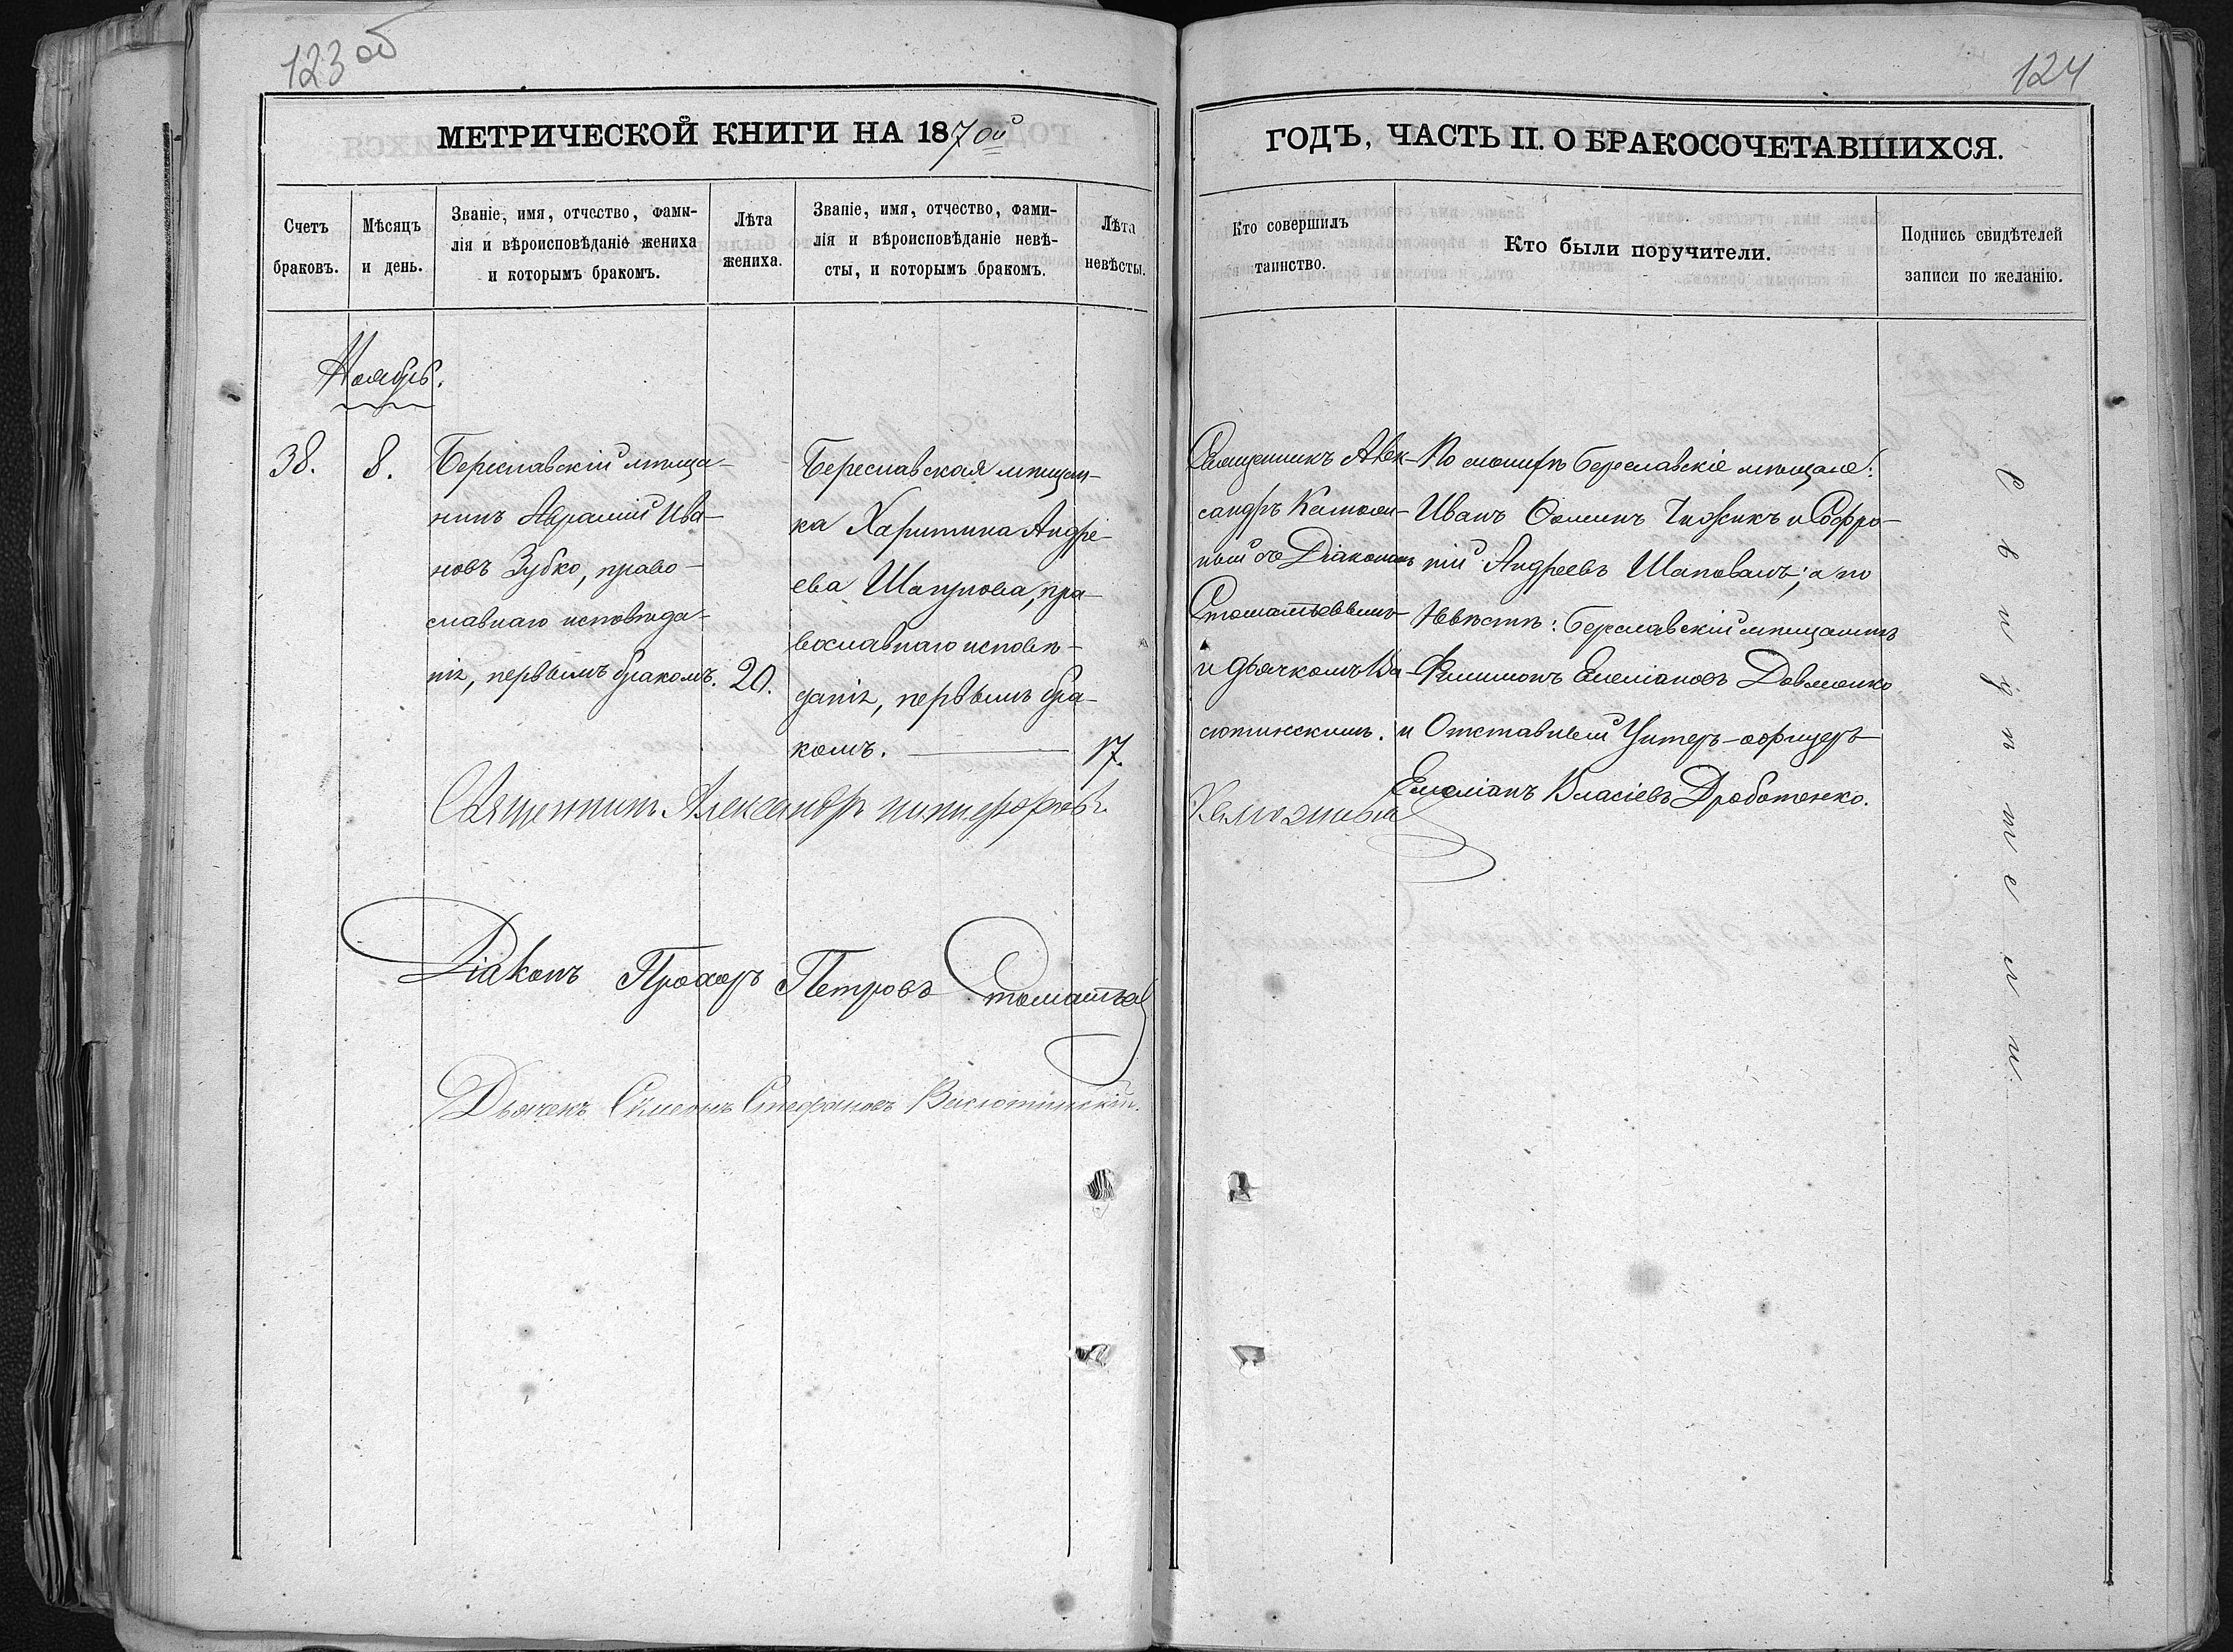 123 об
МЕТРИЧЕСКОЙ КНИГИ НА 1870ый
Счетъ браковъ.
Мѣсяцъ и день.
Званіе, имя, отчество, фами-
лія и вѣроисповѣданіе жениха
и которымъ бракомъ.
Лѣта жениха.
Званіе, имя, отчество, фами-
лія и вѣроисповѣданіе невѣ-
сты, и которымъ бракомъ.
Лѣта невѣсты.
Ноябрь.
38.
8.
Бериславскій мѣща-
нинъ Аврамій Ива-
новъ Зубко, право-
славнаго исповѣда-
нія, первымъ бракомъ.
20.
Бериславская мѣщан-
ка Харитина Андре-
ева Шапулова, пра-
вославнаго исповѣ-
данія, первымъ бра-
комъ.
17.
Священникъ Александръ
Діаконъ Прохоръ Петровъ Стоматьев
Дьячекъ Сѵмеонъ Стефановъ Васютинскій.
124
ГОДЪ, ЧАСТЬ II. О БРАКОСОЧЕТАВШИХСЯ.
Кто совершилъ
таинство.
Кто были поручители.
Подпись свидѣтелей
записи по желанію.
Священникъ Алек-
сандръ
съ Діакономъ
Стоматьевымъ
и дьячкомъ Ва-
сютинскимъ.
По женихѣ Бериславскіе мѣщане:
Иванъ Ѳоминъ Чижикъ и Софро-
ній Андреевъ Шаповалъ; а по
Невѣстѣ: Бериславскій мѣщанинъ
Филимонъ Емеліановъ Довженко
и Отставный Унтеръ-офицеръ
Емеліанъ Власіевъ Дроботенко.